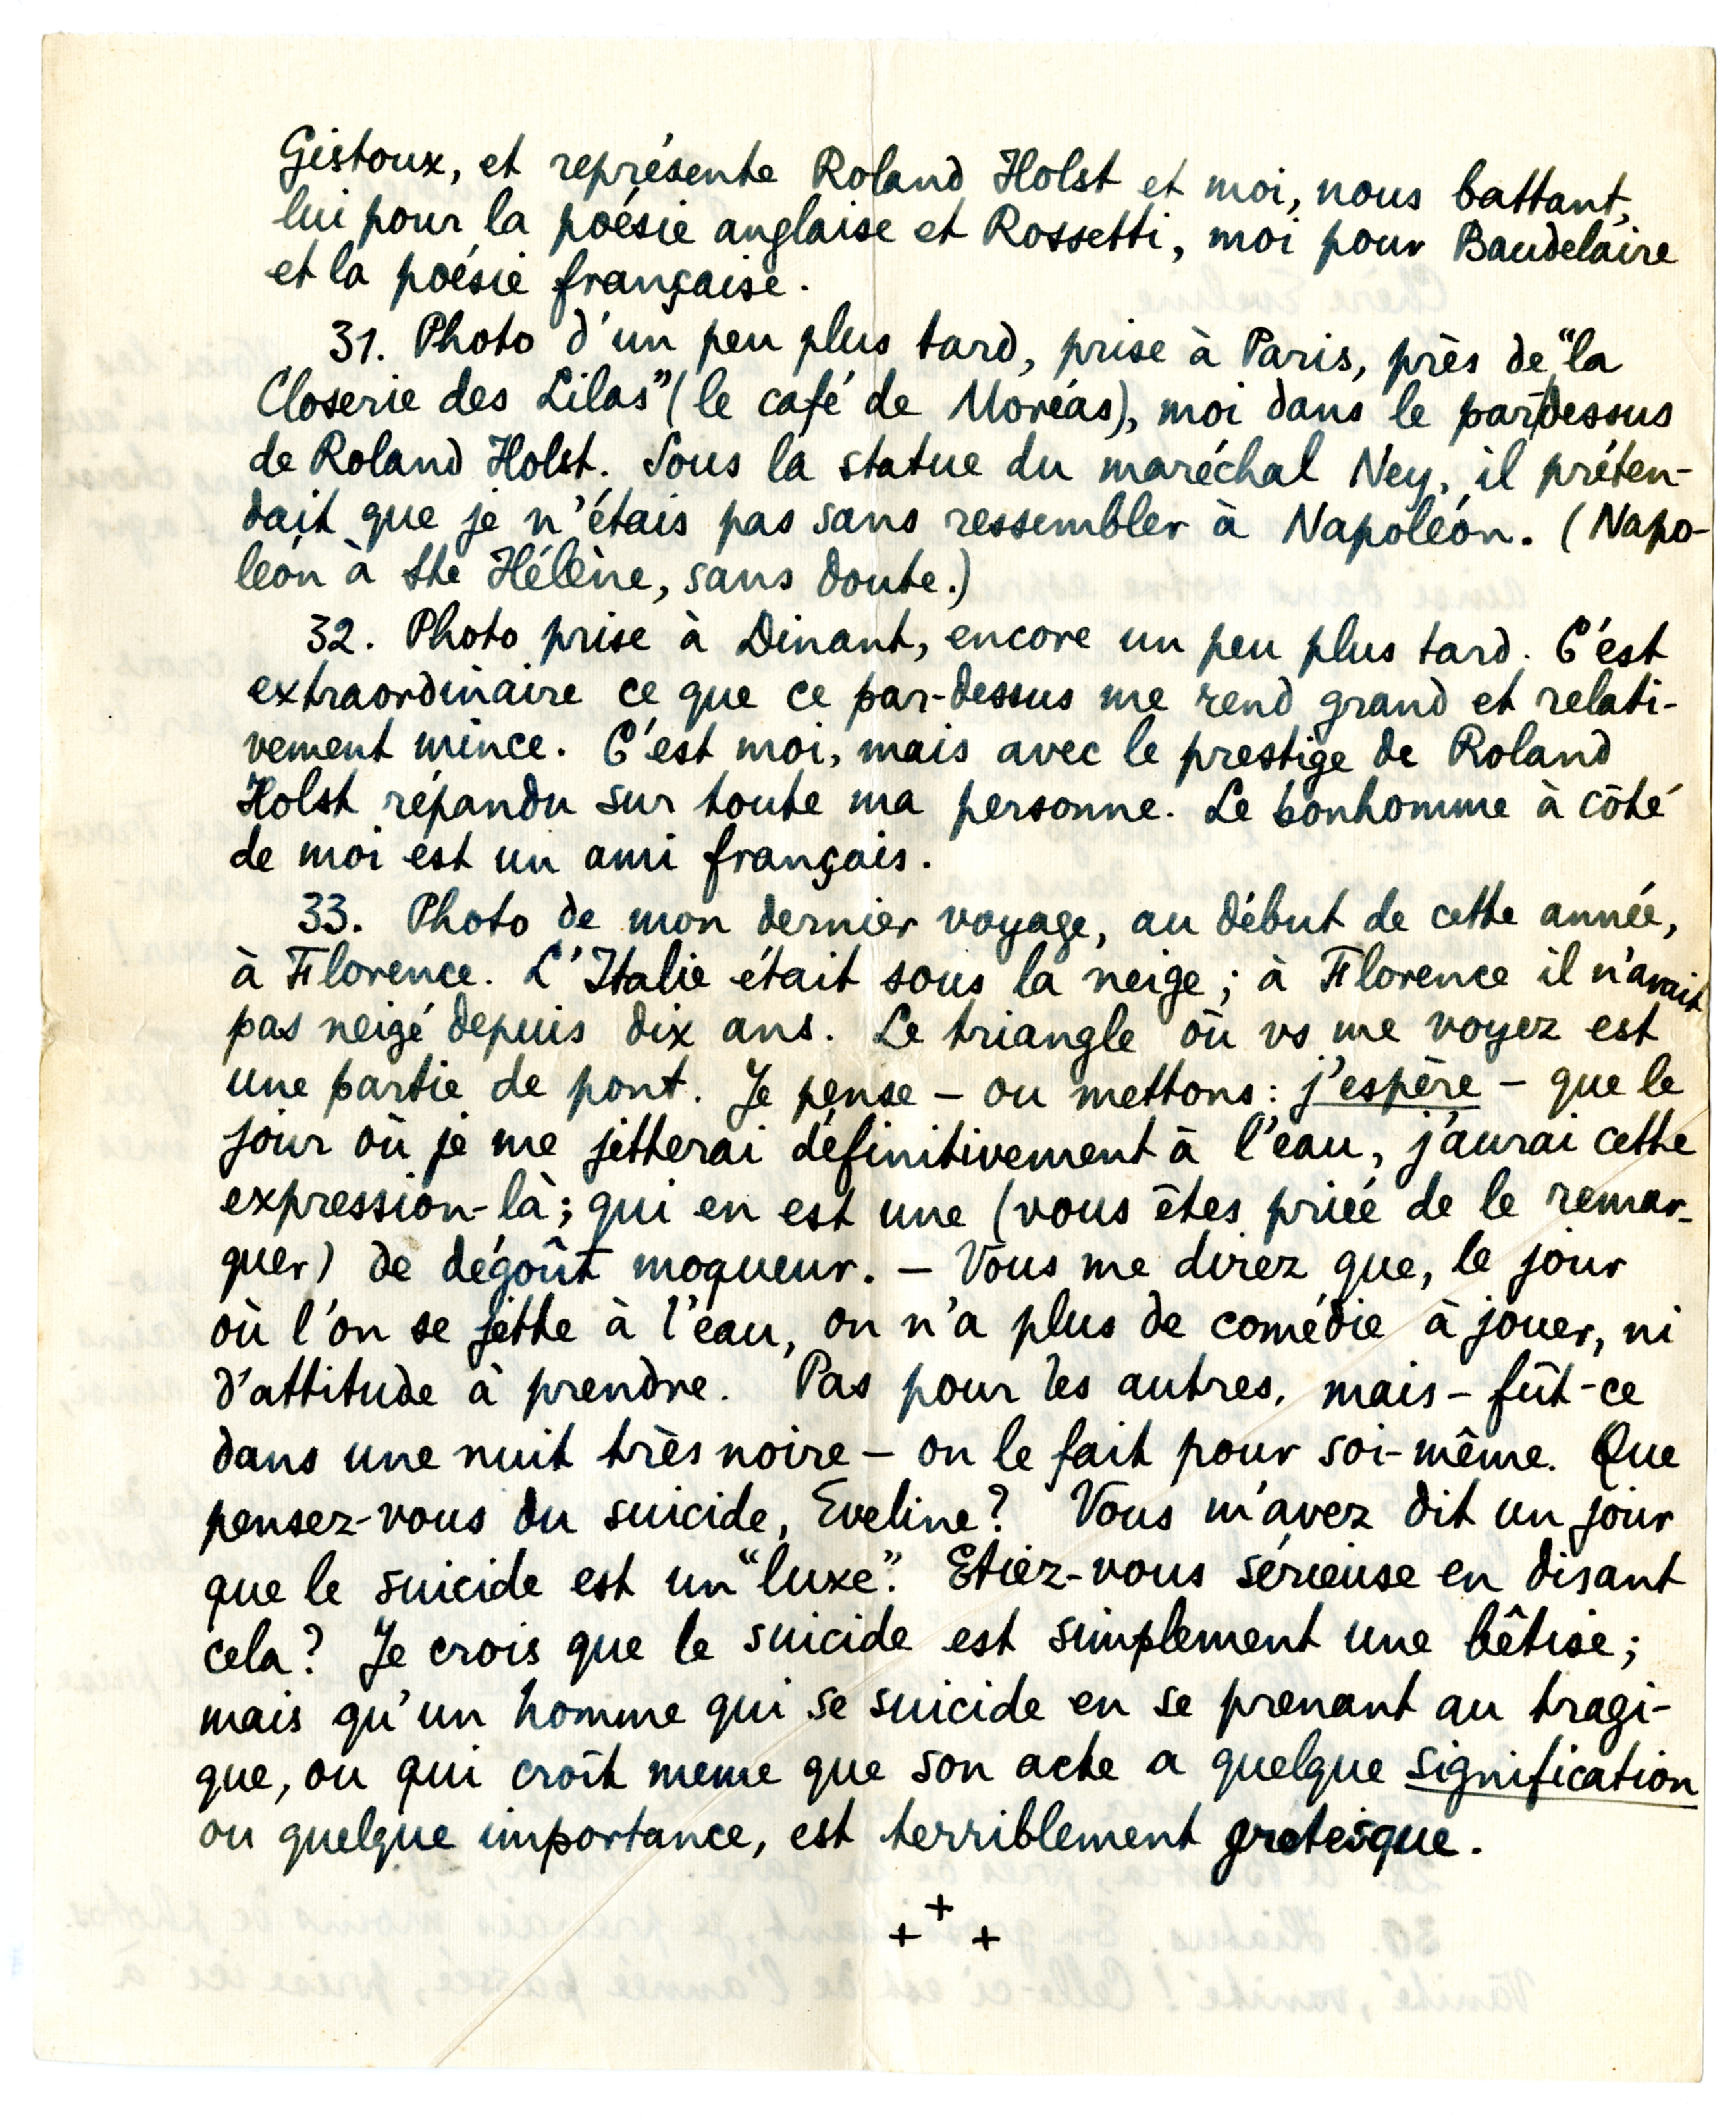 Gistoux, et représente Roland Holst et moi, nous battant,
lui pour la poésie anglaise et Rossetti, moi pour Baudelaire
et la poésie française.
31. Photo d'un peu plus tard, prise à Paris, près de "la
Closerie des Lilas" (le café de Moréas), moi dans le pardessus
de Roland Holst. Sous la statue du maréchal Ney, il préten-
dait que je n'étais pas sans ressembler à Napoléon. (Napo-
léon à Ste Hélène, sans doute.)
32. Photo prise à Dinant, encore un peu plus tard. C'est
extraordinaire ce que ce par-dessus me rend grand et relati-
vement mince. C'est moi, mais avec le prestige de Roland
Holst répandu sur toute ma personne. Le bonhomme à côté
de moi est un ami français.
33. Photo de mon dernier voyage, au début de cette année,
à Florence. L'Italie était sous la neige; à Florence il n'avait
pas neigé depuis dix ans. Le triangle où vs me voyez est
une partie de pont. Je pense – ou mettons: j'espère – que le
jour où je me jetterai définitivement à l'eau, j'aurai cette
expression-là; qui en est une (vous êtes priée de le remar-
quer) de dégoût moqueur. – Vous me direz que, le jour
où l'on se jette à l'eau, on n'a plus de comédie à jouer, ni
d'attitude à prendre. Pas pour les autres, mais – fût-ce
dans une nuit très noire – on le fait pour soi-même. Que
pensez-vous du suicide, Eveline? Vous m'avez dit un jour
que le suicide est un "luxe". Etiez-vous sérieuse en disant
cela? Je crois que le suicide est simplement une bêtise;
mais qu'un homme qui se suicide en se prenant au tragi-
que, ou qui croît meme que son acte a quelque signification
ou quelque importance, est terriblement grotesque.
+ + +